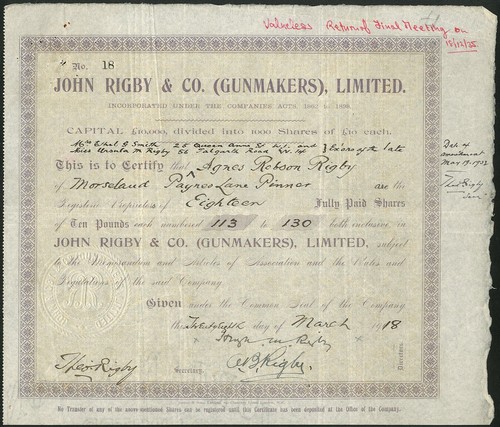 Valueless Return of Final Meeting on
10/12/25
No. 18
JOHN RIGBY & CO. (GUNMAKERS), LIMITED.
INCORPORATED UNDER THE COMPANIES ACTS, 1862 to 1898.
CAPITAL £10,000, divided into 1000 Shares of £10 each.
Mrs Ethel G Smith 25 Queen Anne St W.1 and Exors of the late
Miss Ursula M Rigby 52 Road W. 14
This is to Certify that Agnes Robson Rigby
of Morseland Paynes Lane Pinner are the
Registered Proprietors of Eighteen Fully Paid Shares
of Ten Pounds each numbered 113 to 130 both inclusive, in
JOHN RIGBY & CO. (GUNMAKERS), LIMITED, subject
to the Memorandum and Articles of Association and the Rules and
Regulations of the said Company.
Given under the Common Seal of the Company
the day of March 1918
Rigby
Theo Rigby Secretary. Rigby Directors.
No Transfer of any of the above-mentioned Shares can be registered until this Certificate has been deposited at the Office of the Company.
May 19, 1922
Theo Rigby